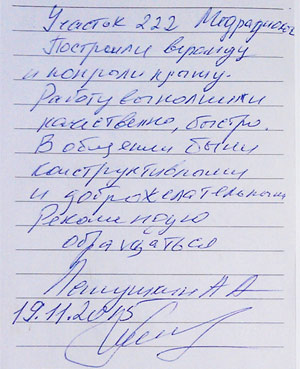 Участок 222
Построили веранду
и покрыли крышу.
Работу выполнили
качественно, быстро.
В общении были
конструктивными
и доброжелательными
Рекомендую
обращаться
19.11.2015